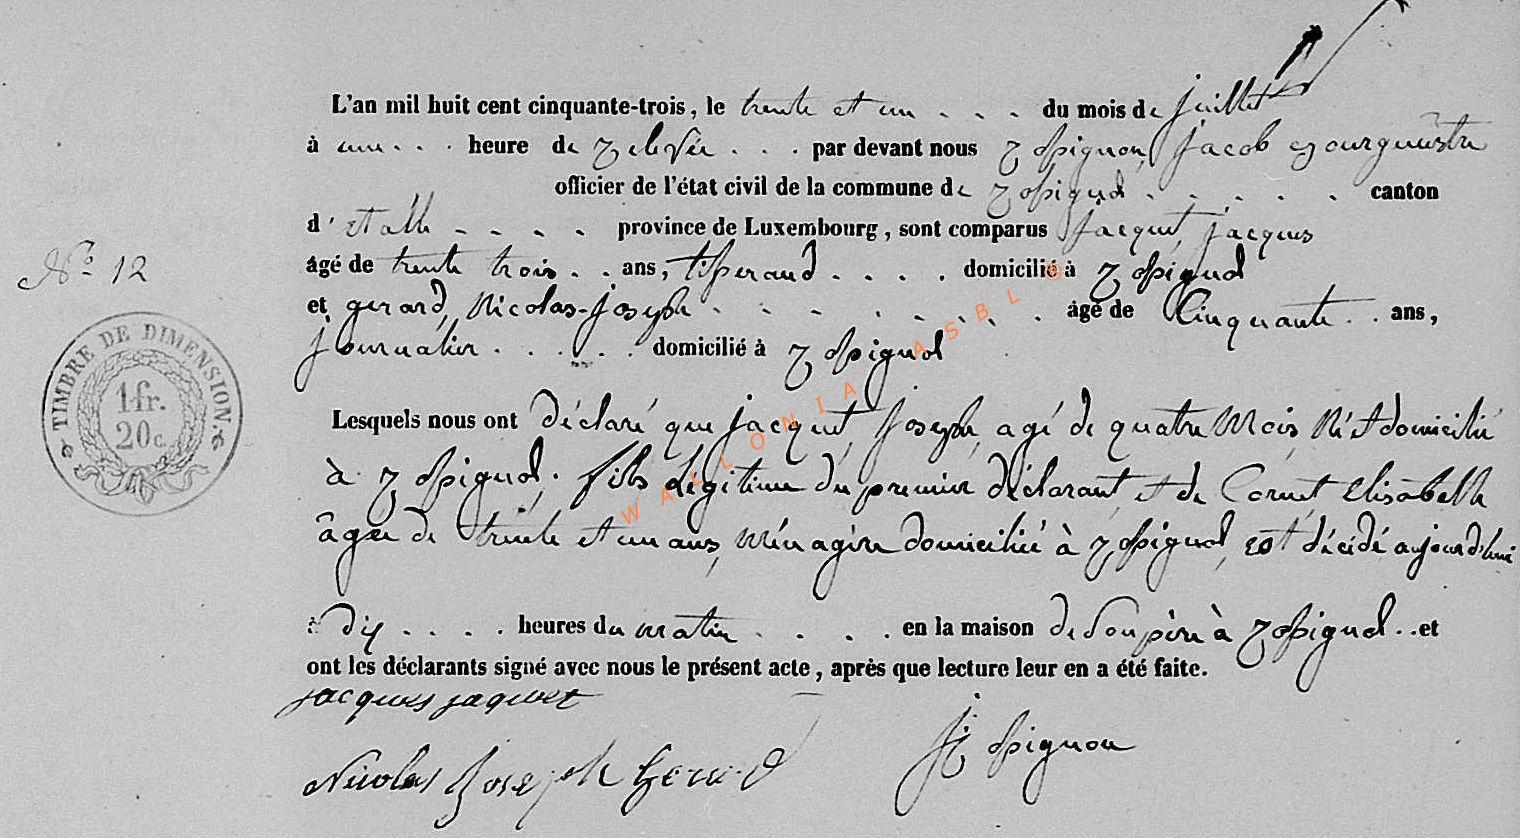 L'an mil huit cent cinquante-trois, le trente et un . . . du mois de juillet
à une . . . heure de Relevée . . . par devant nous Rossignon, Jacob Bourguestre
officier de l'état civil de la commune de Rossignol . . . . . canton
d'Etalle - - - - province de Luxembourg, sont comparus Jacquet, Jacques
N° 12
âgé de trente trois . . ans, tisserand . . . . domicilié à Rossignol
et gerard, Nicolas-Joseph . . . . . . . . âgé de Cinquante . . ans,
Journalier . . . . . . domicilié à Rossignol
TIMBRE DE DIMENSION.
1 fr.
20 c.
WALLONIA ASBL ©
Lesquels nous ont déclaré que jacquet, Joseph, agé de quatre Mois, Né et domicilié
à Rossignol, fils Légitime du premier déclarant et de Cornet Elisabeth
âgée de trente et un ans, Ménagère domiciliée à Rossignol, est décédé aujourd'hui
à dix . . . . heures du matin . . . . en la maison de Son père à Rossignol . . et
ont les déclarants signé avec nous le présent acte, après que lecture leur en a été faite.
jacques jaquet
J Rossignon
Nicolas Joseph Gerard